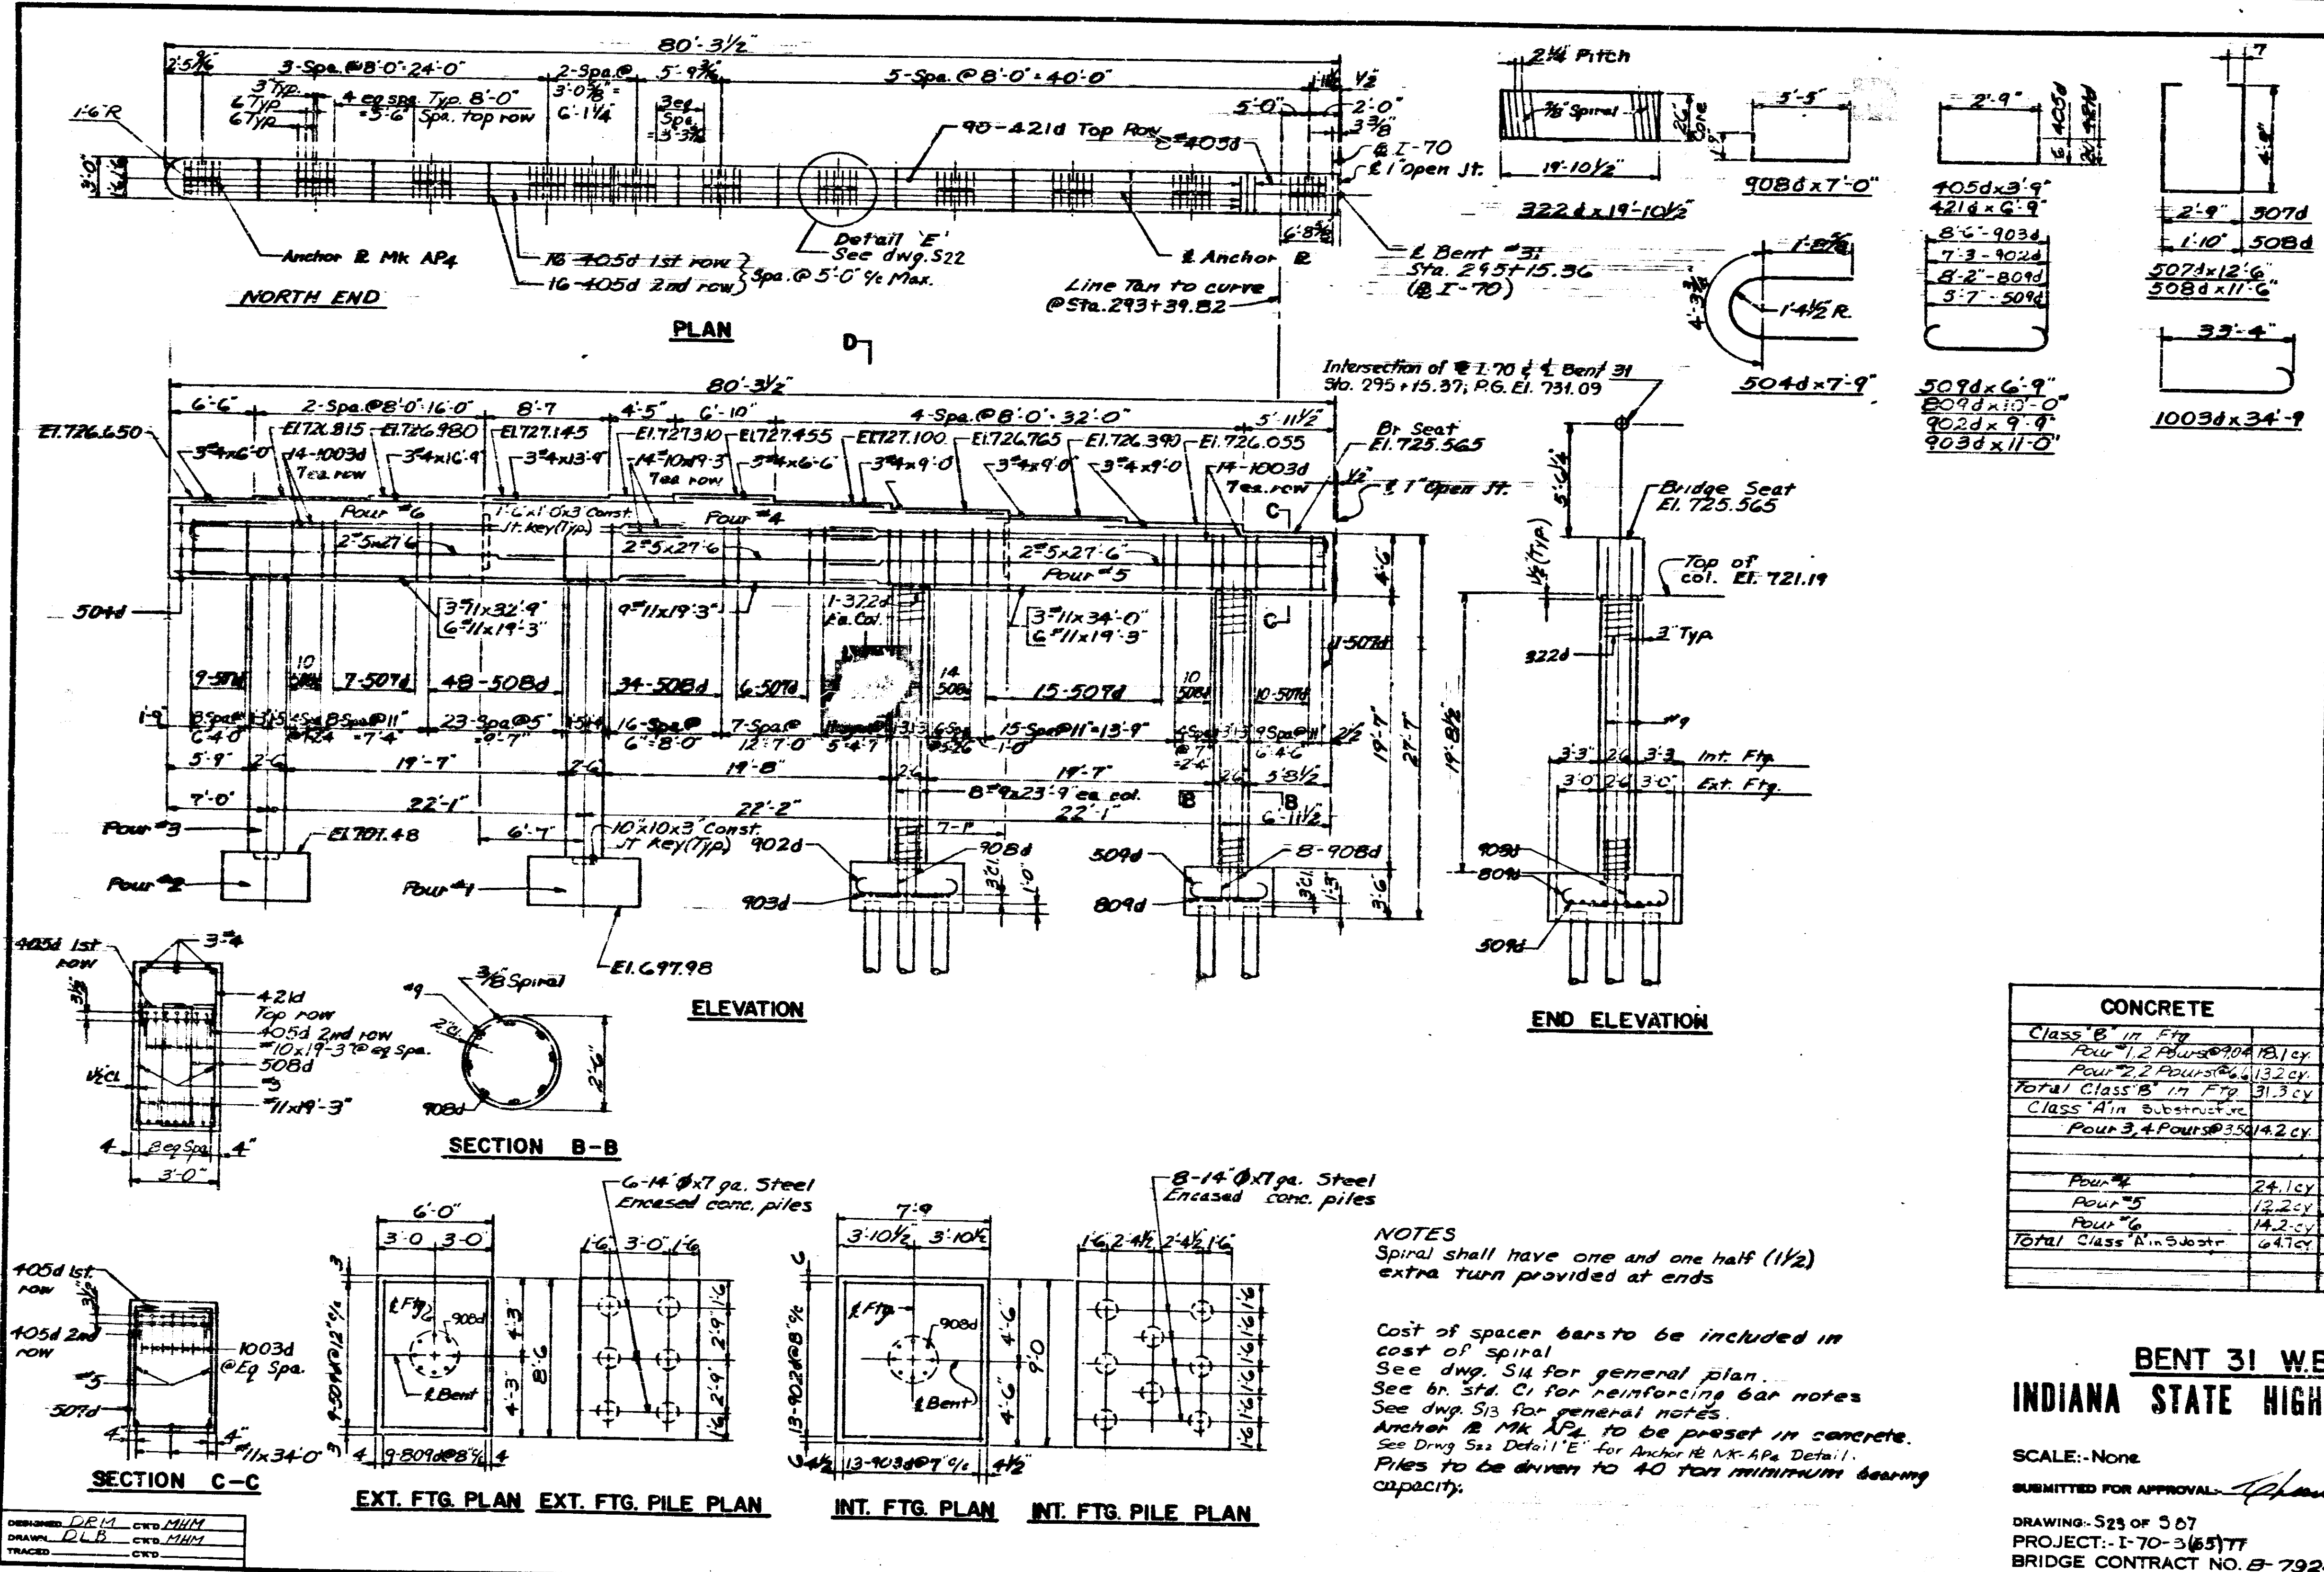 80'-3½"
2'-5 9/16"
3-Spa.@8'-0"=24'-0"
2-Spa.@
3'-0⅝"=
6'-1¼"
5'-9 3/16"
5-Spa.@8'-0"=40'-0"
½"
3 Typ.
6 Typ
6 Typ
4 eq spa. Typ. 8'-0"
=5'-6" Spa. top row
3 eq
Spa.
1'-6 R
5'-0"
2'-0"
3⅜"
90-421d Top Row
8-#405d
℄ I-70
℄ 1" Open Jt.
3'-0"
1'-6 1'-6
Anchor ℞ Mk AP4
16-405d 1st row
16-405d 2nd row
Spa.@5'-0" c/c Max.
Detail 'E'
See dwg. S22
℄ Anchor ℞
Line Tan to curve
@Sta. 293+39.82
℄ Bent #31
Sta. 295+15.36
(℄ I-70)
NORTH END
PLAN
2¼" Pitch
⅜" Spiral
26"
core
19'-10½"
322d x 19'-10½"
5'-5"
908d x 7'-0"
2'-9"
6" 405d
421d
405d x 3'-9"
421d x 6'-9"
7
4'-8"
2'-9" 507d
1'-10" 508d
507d x 12'-6"
508d x 11'-6"
1'-4½ R.
504d x 7'-9"
8'-6"-903d
7'-3-902d
8'-2"-809d
5'-7"-509d
509d x 6'-9"
809d x 10'-0"
902d x 9'-9"
903d x 11'-0"
33'-4"
1003d x 34'-9
D
80'-3½"
6'-6"
2-Spa.@8'-0"=16'-0"
8'-7
4'-5"
6'-10"
4-Spa.@8'-0"=32'-0"
5'-11½"
El.726.650
El.726.815
El.726.980
El.727.145
El.727.310
El.727.455
El.727.100
El.726.765
El.726.390
El.726.055
Br Seat
El.725.565
3#4x6'-0
14-1003d
7 ea. row
3#4x16'-9
3#4x13'-9"
14#10x19'-3
7 ea row
3#4x6'-6
3#4x9'-0
3#4x9'-0
3#4x9'-0
14-1003d
7 ea. row
½"
℄ 1" Open Jt.
Pour #6
1'-6"x1'-0x3" Const.
Jt. key (Typ.)
Pour #4
2#5x27'-6
2#5x27'-6
2#5x27'-6"
Pour #5
C
C
504d
3#11x32'-9"
6#11x19'-3"
9#11x19'-3"
1-322d
Ea. Col.
3#11x34'-0"
6#11x19'-3"
1-507d
9-507d
10
508d
7-507d
48-508d
34-508d
6-507d
14
508d
15-507d
10
508d
10-507d
1'-9"
23-Spa@5"
=9'-7"
16-Spa@
6"=8'-0"
7-Spa@
12"=7'-0"
15-Spa@11"=13'-9"
2½
5'-9"
2'-6
19'-7"
2'-6
19'-8"
2'-6
19'-7"
2'-6
5'-8½"
8#9x23'-9" ea. col.
7'-0"
22'-1"
22'-2"
22'-1"
6'-11½"
6'-7"
7'-1"
B
B
4'-6"
19'-7"
27'-7"
3'-6"
Pour #3
El.701.48
10"x10x3" Const.
Jt key (Typ)
902d
908d
903d
3"Cl.
1'-0"
509d
8-908d
809d
3"Cl.
1'-3"
Pour #2
Pour #1
El.697.98
ELEVATION
Intersection of ℄ I-70 & ℄ Bent 31
Sta. 295+15.37; P.G. El. 731.09
5'-6¼"
Bridge Seat
El. 725.565
1½"(Typ)
Top of
col. El. 721.19
3" Typ.
322d
19'-8½"
#9
3'-3" 2'-6 3'-3 Int. Ftg
3'-0" 2'-6 3'-0" Ext. Ftg.
908d
809d
509d
END ELEVATION
405d 1st
row
3-#4
3½"
421d
Top row
405d 2nd row
#10x19'-3"@eq Spa.
508d
1½ Cl.
#5
#11x19'-3"
4 8 eq Spa 4"
3'-0"
⅜ Spiral
#9
2"Cl.
908d
2'-6"
SECTION B-B
405d 1st.
row
3½"
405d 2nd
row
1003d
@Eq Spa.
#5
507d
4 4"
#11x34'-0
SECTION C-C
6'-0"
3'-0 3'-0
℄ Ftg
908d
℄ Bent
4'-3"
4'-3"
8'-6"
3
9-509d@12"c/c
3
4 9-809d@8"c/c 4
EXT. FTG. PLAN
6-14"∅x7 ga. Steel
Encased conc. piles
1'-6" 3'-0" 1'-6
1'-6
2'-9"
2'-9"
1'-6
EXT. FTG. PILE PLAN
7'-9
3'-10½" 3'-10½
℄ Ftg.
908d
℄ Bent
4'-6"
4'-6"
9'-0
6
13-902d@8"c/c
6
4½ 13-903d@7"c/c 4½"
INT. FTG. PLAN
8-14"∅x7 ga. Steel
Encased conc. piles
1'-6 2'-4½ 2'-4½ 1'-6
1'-6 1'-6 1'-6 1'-6 1'-6 1'-6
INT. FTG. PILE PLAN
NOTES
Spiral shall have one and one half (1½)
extra turn provided at ends
Cost of spacer bars to be included in
cost of spiral
See dwg. S14 for general plan.
See br. std. C1 for reinforcing bar notes
See dwg. S13 for general notes.
Anchor ℞ Mk AP4 to be preset in concrete.
See Drwg S22 Detail 'E' for Anchor ℞ MK-AP4 Detail.
Piles to be driven to 40 ton minimum bearing
capacity.
CONCRETE
Class "B" in Ftg
Pour #1, 2 Pours@9.04 18.1 cy.
Pour #2, 2 Pours@6.6 13.2 cy.
Total Class "B" in Ftg. 31.3 cy
Class "A" in Substructure
Pour 3, 4 Pours@3.56 14.2 cy.
Pour #4 24.1 cy
Pour #5 12.2 cy
Pour #6 14.2 cy
Total Class "A" in Substr 64.7 cy
BENT 31 W.B
INDIANA STATE HIGH
SCALE:-None
SUBMITTED FOR APPROVAL:-
DRAWING:- S23 OF S87
PROJECT:- I-70-3(65)77
BRIDGE CONTRACT NO. B-792
DESIGNED DRM CK'D MHM
DRAWN DLB CK'D MHM
TRACED CK'D